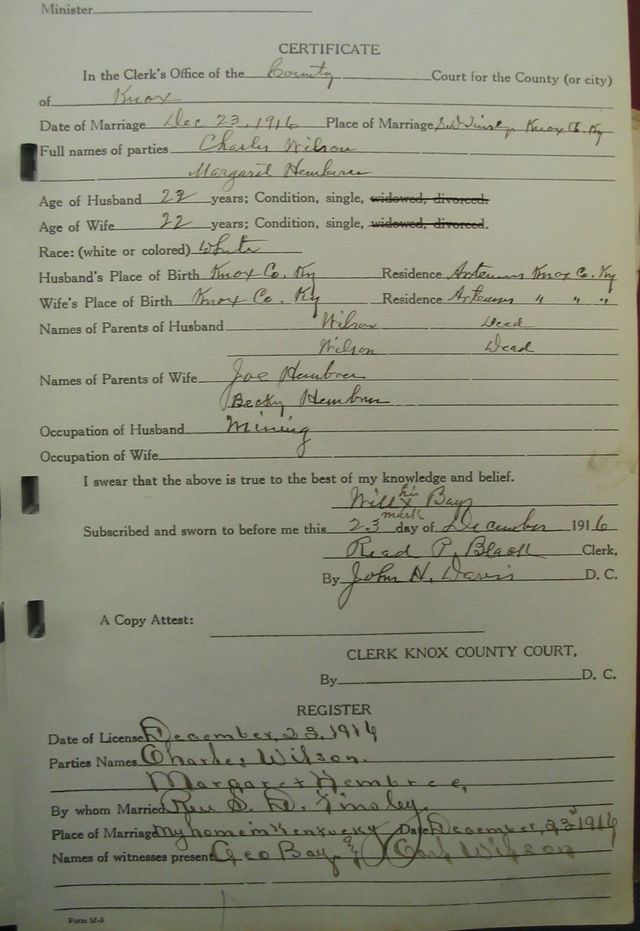 Minister
CERTIFICATE
In the Clerk's Office of the County Court for the County (or city)
of Knox
Date of Marriage Dec 23, 1916 Place of Marriage Knox Co. Ky
Full names of parties Charles Wilson
Margaret Hembree
Age of Husband 22 years; Condition, single, widowed, divorced.
Age of Wife 22 years; Condition, single, widowed, divorced.
Race: (white or colored) White
Husband's Place of Birth Knox Co. Ky Residence Artemus Knox Co. Ky
Wife's Place of Birth Knox Co. Ky Residence Artemus " " "
Names of Parents of Husband Wilson Dead
Wilson Dead
Names of Parents of Wife Joe Hembree
Becky Hembree
Occupation of Husband Mining
Occupation of Wife
I swear that the above is true to the best of my knowledge and belief.
Will his x mark Bays
Subscribed and sworn to before me this 23 day of December 1916
Read P. Black Clerk,
By John H. Davis D. C.
A Copy Attest:
CLERK KNOX COUNTY COURT,
By D. C.
REGISTER
Date of License December, 23, 1916
Parties Names Charles Wilson.
Margaret Hembree,
By whom Married Rev S. D. Tinsley.
Place of Marriage My home in Kentucky Date December, 23 1916
Names of witnesses present Geo Bay & Wilson
Form M-J